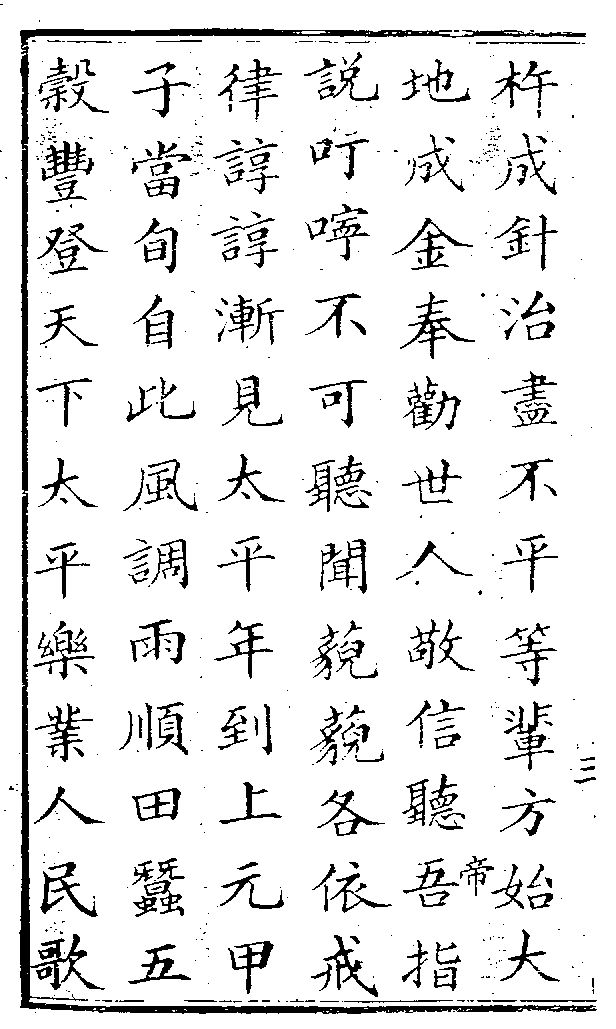 杵成針治盡不平等輩方始大
地成金奉勸世人敬信聽吾帝指
説叮嚀不可聽聞藐藐各依戒
律諄諄漸見太平年到上元甲
子當旬自此風調雨順田蠶五
穀豐登天下太平樂業人民歌
三